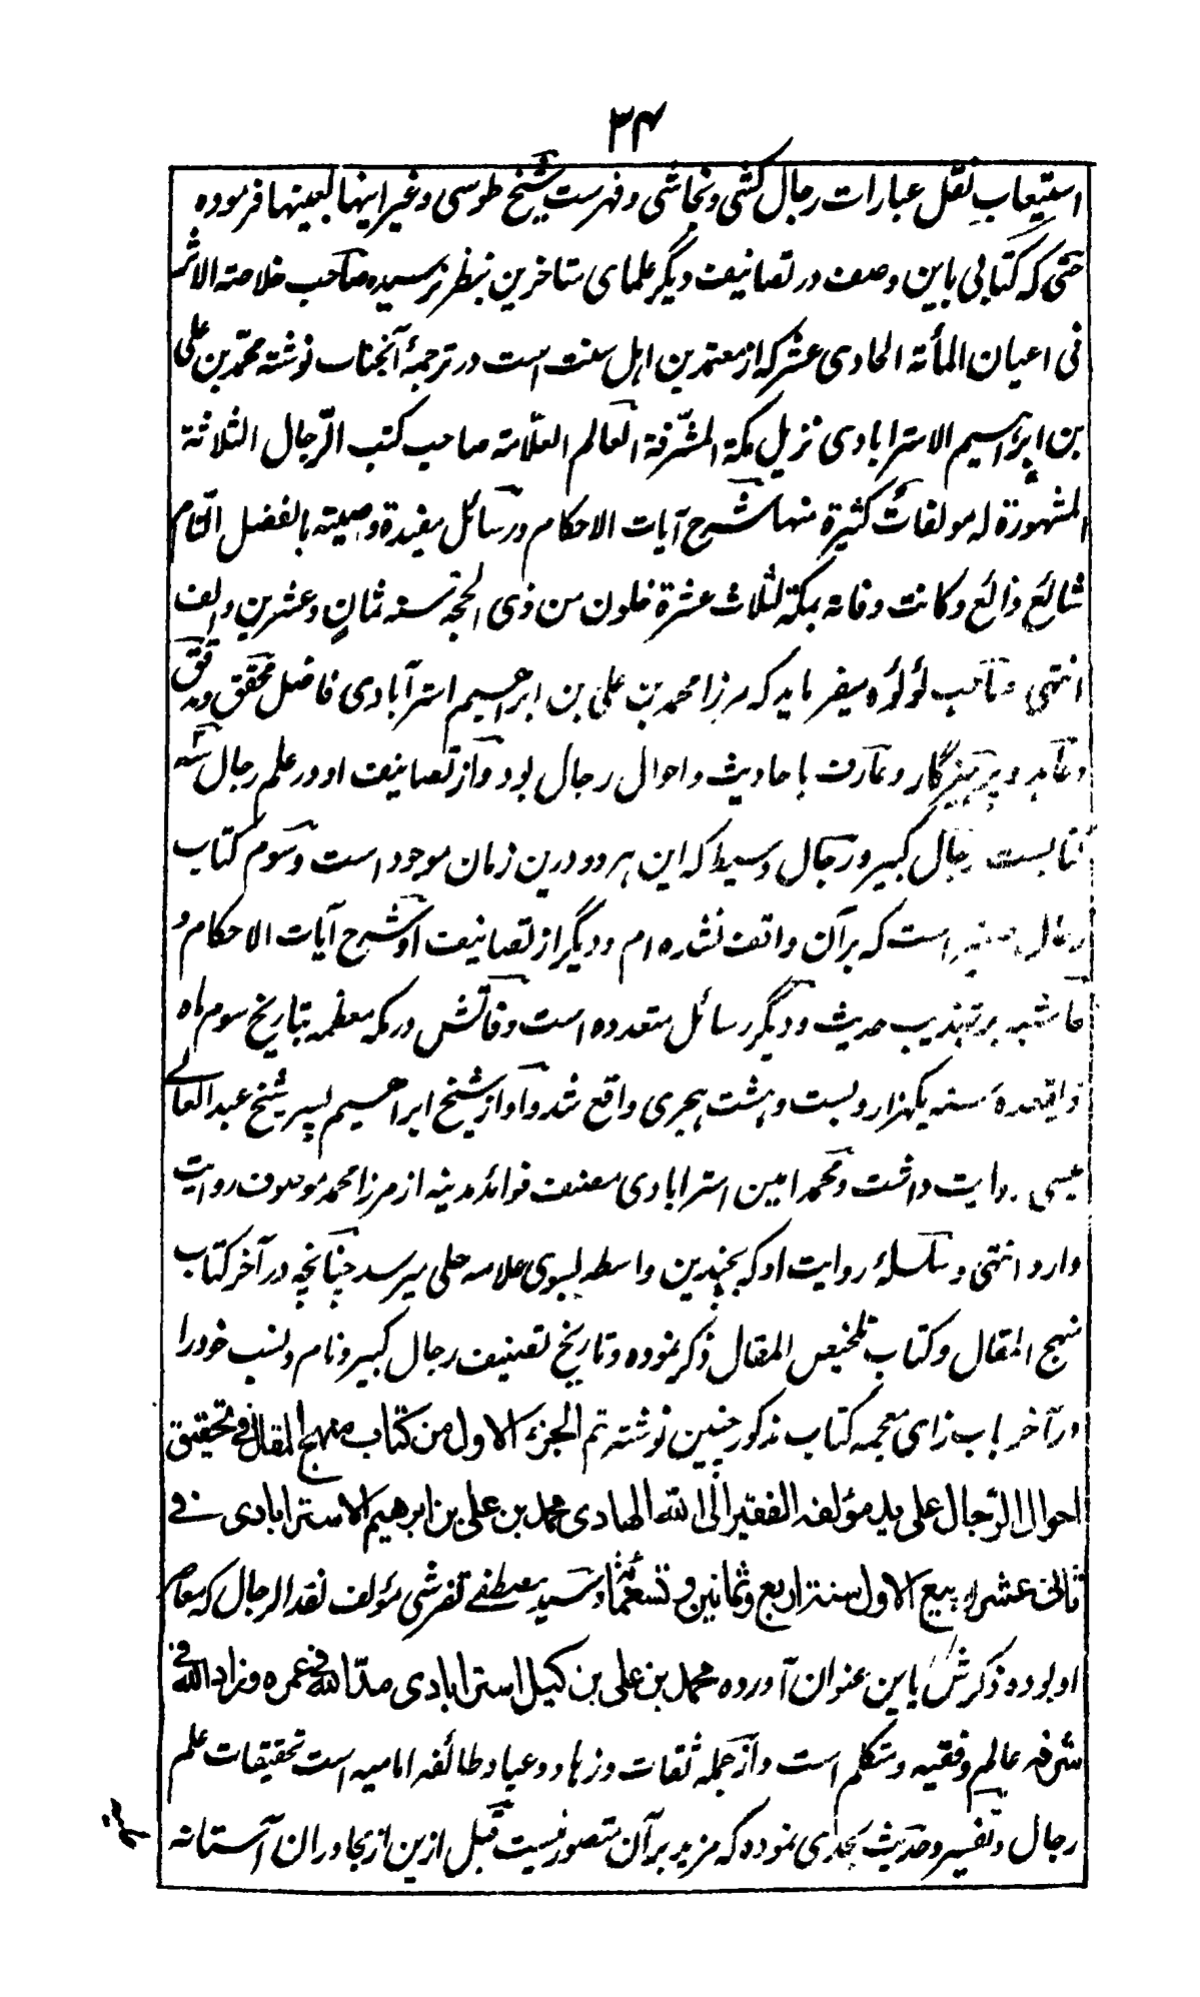 ۳۴
استیعاب نقل عبارات رجال کشی و نجاشی و فهرست شیخ طوسی و غیر اینها بعینها فرموده
حتی که کتابی باین وصف در تصانیف دیگر علمای متاخرین بنظر نرسیده صاحب خلاصة الاثر
فی اعیان المأته الحادی عشر که از معتمدین اہل سنت است در ترجمۂ آنجناب نوشته محمد بن علی
بن ابراہیم الاسترابادی نزیل مکة المشرفة العالم العلامة صاحب کتب الرجال الثلاثة
المشهورة له مولفات کثیرة منها شرح آیات الاحکام و رسائل مفیدة وصیته بالفضل التام
شائع ذائع و کانت وفاته بمکة لثلاث عشرة خلون من ذی الحجة سنه ثمانٍ و عشرین و الف
انتهی و صاحب لؤلؤه میفرماید که مرزا محمد بن علی بن ابراهیم استرآبادی فاضل محقق و مدقق
و عابد و پرہیزگار و عارف باحادیث و احوال رجال بود و از تصانیف او در علم رجال سه
کتابست رجال کبیر و رجال وسیط که این ہر دو درین زمان موجود است و سوم کتاب
رجال صغیر است که برآن واقف نشده ام و دیگر از تصانیف او شرح آیات الاحکام و
حاشیه بر تهذیب حدیث و دیگر رسائل متعدده است وفاتش در مکه معظمه بتاریخ سوم ماه
ذایقعده سنه یکهزار و بست و ہشت ہجری واقع شد و او از شیخ ابراهیم پسر شیخ عبدالعالے
میسی روایت داشت و محمد امین استرابادی مصنف فوائد مدینه از مرزا محمد موصوف روایت
دارد انتهی و سلسلۂ روایت او که بچندین واسطه بسوی علامه حلی میرسد چنانچه در آخر کتاب
منهج المقال و کتاب تلخیص المقال ذکر نموده و تاریخ تصنیف رجال کبیر و نام و نسب خود را
در آخر باب زای معجمه کتاب مذکور چنین نوشته تم الجزء الاول من کتاب منهج المقال فی تحقیق
احوال الرجال علی ید مؤلفه الفقیر الی الله الهادی محمد بن علی بن ابرهیم الاسترابادی فے
ثالث عشر ربیع الاول سنة اربع و ثمانین و تسعمائة و سید مصطفے تفرشی مؤلف نقد الرجال که معاصر
او بوده ذکرش باین عنوان آورده محمد بن علی بن کیل استرابادی مدّ الله فی عمره و زاد الله فی
شرفه عالم و فقیه و متکلم است و از جمله ثقات و زهاد و عباد طائفه امامیه است تحقیقات علم
رجال و تفسیر و حدیث بحدی نموده که مزید برآن متصور نیست قبل ازین از مجاوران آستانه